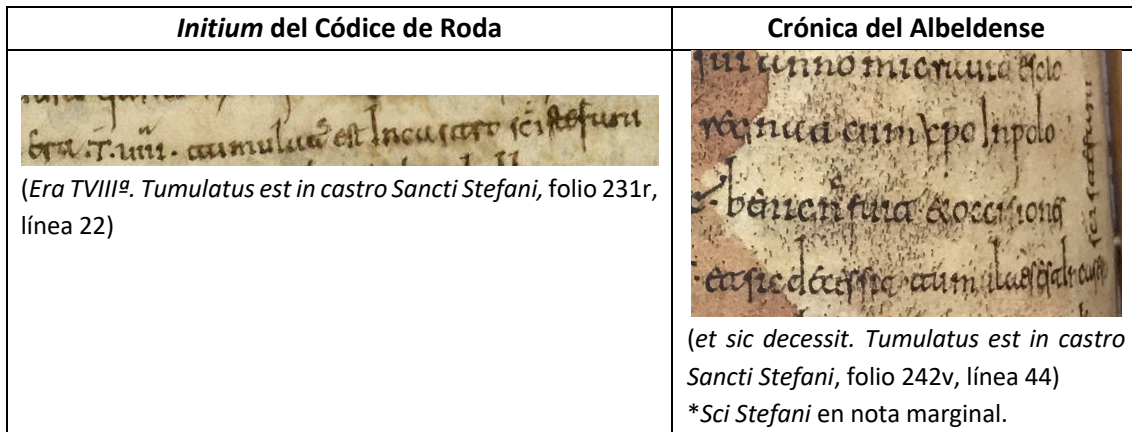 Initium del Códice de Roda
Crónica del Albeldense
tumulatus est In castro sci stefani
(Era TVIIIª. Tumulatus est in castro Sancti Stefani, folio 231r,
línea 22)
anno migrauit e solo
regnat cum xpo In polo
sci stefani
et sic decessit tumulatus
(et sic decessit. Tumulatus est in castro
Sancti Stefani, folio 242v, línea 44)
*Sci Stefani en nota marginal.